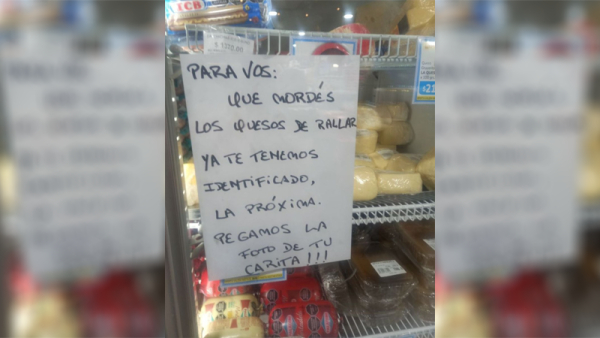 TCB
PARA VOS:
QUE MORDÉS
LOS QUESOS DE RALLAR
YA TE TENEMOS
IDENTIFICADO,
LA PRÓXIMA.
PEGAMOS LA
FOTO DE TU
CARITA!!!